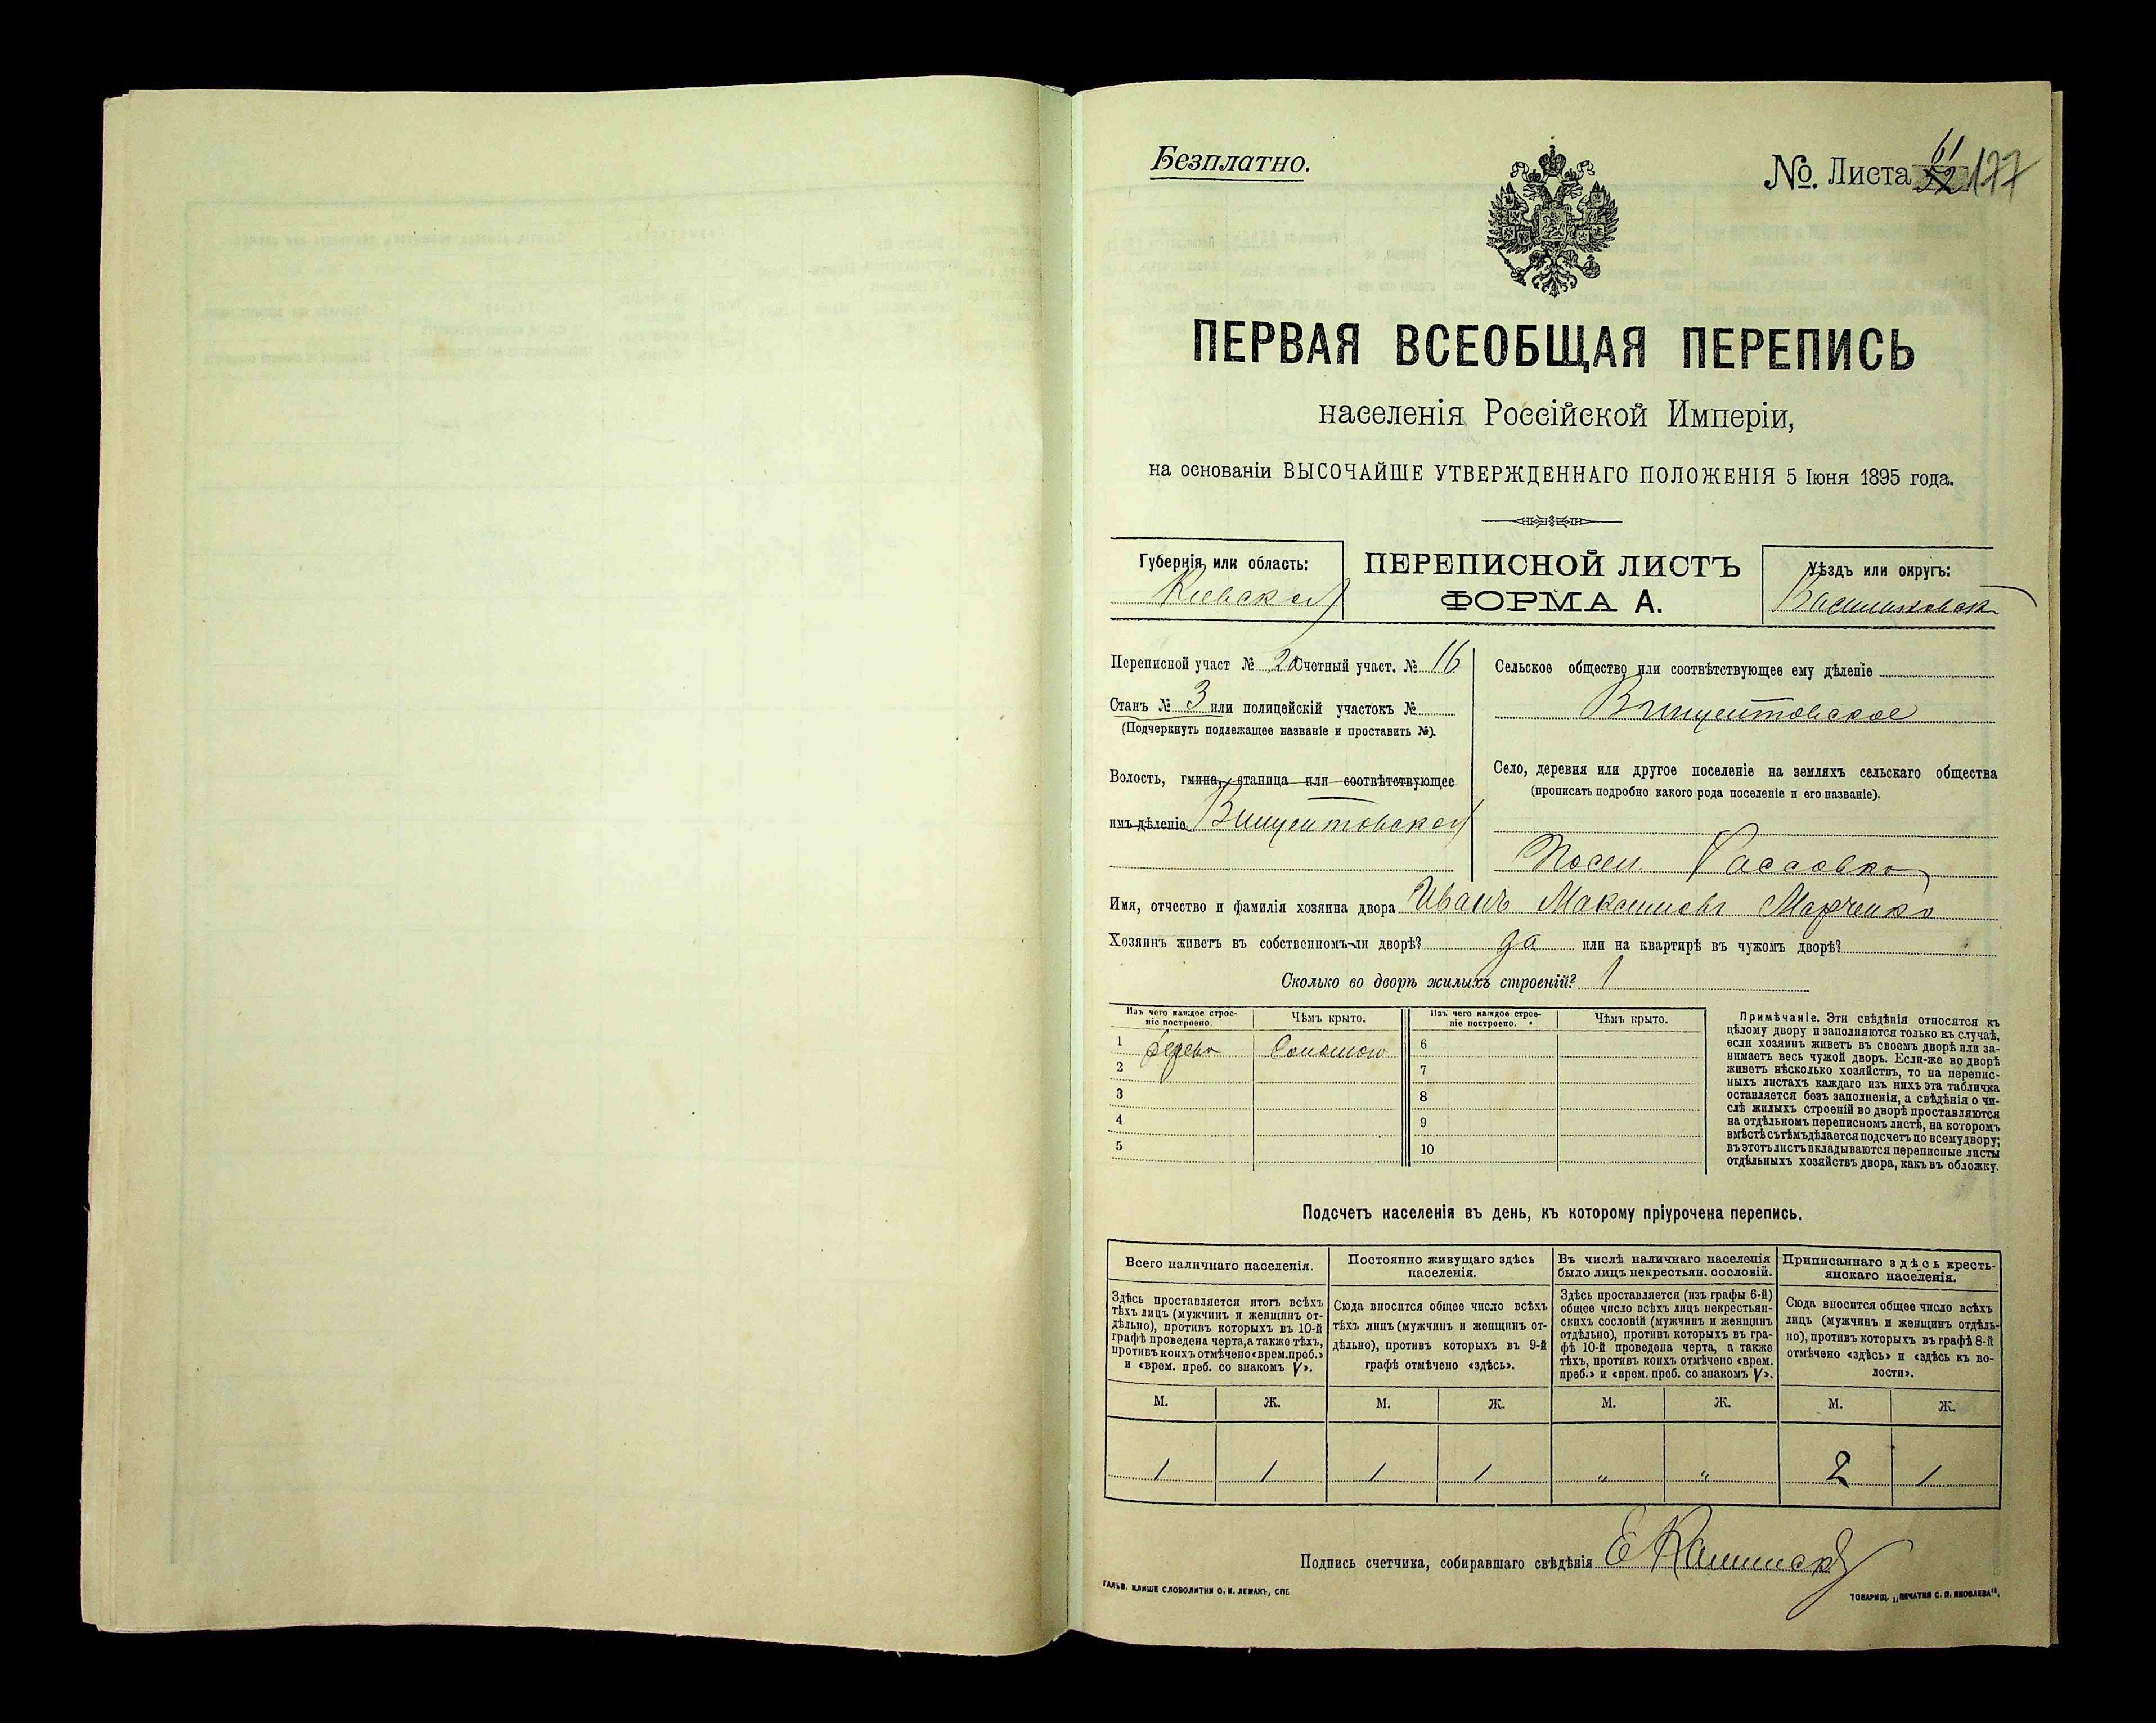 Безплатно.
№ Листа 61 52 177
ПЕРВАЯ ВСЕОБЩАЯ ПЕРЕПИСЬ
населенія Россійской Имперіи,
на основаніи ВЫСОЧАЙШЕ УТВЕРЖДЕННАГО ПОЛОЖЕНІЯ 5 Іюня 1895 года.
Губернія или область:
Кіевская
ПЕРЕПИСНОЙ ЛИСТЪ
ФОРМА А.
Уѣздъ или округъ:
Васильковск
Переписной участ № 20 Счетный участ. № 16
Станъ № 3 или полицейскій участокъ №
(Подчеркнуть подлежащее названіе и проставить №).
Волость, гмина, станица или соотвѣтствующее
имъ дѣленіе Винцентовская
Сельское общество или соотвѣтствующее ему дѣленіе
Винцентовское
Село, деревня или другое поселеніе на земляхъ сельскаго общества
(прописать подробно какого рода поселеніе и его названіе).
Посел.
Имя, отчество и фамилія хозяина двора Иванъ Максимовъ Марченко
Хозяинъ живетъ въ собственномъ-ли дворѣ? да или на квартирѣ въ чужомъ дворѣ?
Сколько во дворѣ жилыхъ строеній? 1
Изъ чего каждое строе-
ніе построено.
Чѣмъ крыто.
Изъ чего каждое строе-
ніе построено.
Чѣмъ крыто.
1 дерева Соломою 6
2 7
3 8
4 9
5 10
Примѣчаніе. Эти свѣдѣнія относятся къ
цѣлому двору и заполняются только въ случаѣ,
если хозяинъ живетъ въ своемъ дворѣ или за-
нимаетъ весь чужой дворъ. Если-же во дворѣ
живетъ нѣсколько хозяйствъ, то на перепис-
ныхъ листахъ каждаго изъ нихъ эта табличка
оставляется безъ заполненія, а свѣдѣнія о чи-
слѣ жилыхъ строеній во дворѣ проставляются
на отдѣльномъ переписномъ листѣ, на которомъ
вмѣстѣ съ тѣмъ дѣлается подсчетъ по всему двору;
въ этотъ листъ вкладываются переписные листы
отдѣльныхъ хозяйствъ двора, какъ въ обложку.
Подсчетъ населенія въ день, къ которому пріурочена перепись.
Всего наличнаго населенія.
Здѣсь проставляется итогъ всѣхъ
тѣхъ лицъ (мужчинъ и женщинъ от-
дѣльно), противъ которыхъ въ 10-й
графѣ проведена черта, а также тѣхъ,
противъ коихъ отмѣчено «врем. преб.»
и «врем. преб. со знакомъ V».
Постоянно живущаго здѣсь
населенія.
Сюда вносится общее число всѣхъ
тѣхъ лицъ (мужчинъ и женщинъ от-
дѣльно), противъ которыхъ въ 9-й
графѣ отмѣчено «здѣсь».
Въ числѣ наличнаго населенія
было лицъ некрестьян. сословій.
Здѣсь проставляется (изъ графы 6-й)
общее число всѣхъ лицъ некрестьян-
скихъ сословій (мужчинъ и женщинъ
отдѣльно), противъ которыхъ въ гра-
фѣ 10-й проведена черта, а также
тѣхъ, противъ коихъ отмѣчено «врем.
преб.» и «врем. преб. со знакомъ V».
Приписаннаго здѣсь кресть-
янскаго населенія.
Сюда вносится общее число всѣхъ
лицъ (мужчинъ и женщинъ отдѣль-
но), противъ которыхъ въ графѣ 8-й
отмѣчено «здѣсь» и «здѣсь къ во-
лости».
М. Ж. М. Ж. М. Ж. М. Ж.
1 1 1 1 " " 2 1
Подпись счетчика, собиравшаго свѣдѣнія
ГАЛЬВ. КЛИШЕ СЛОВОЛИТНИ О. И. ЛЕМАНЪ, СПБ.
ТОВАРИЩ. „ПЕЧАТНЯ С. П. ЯКОВЛЕВА".